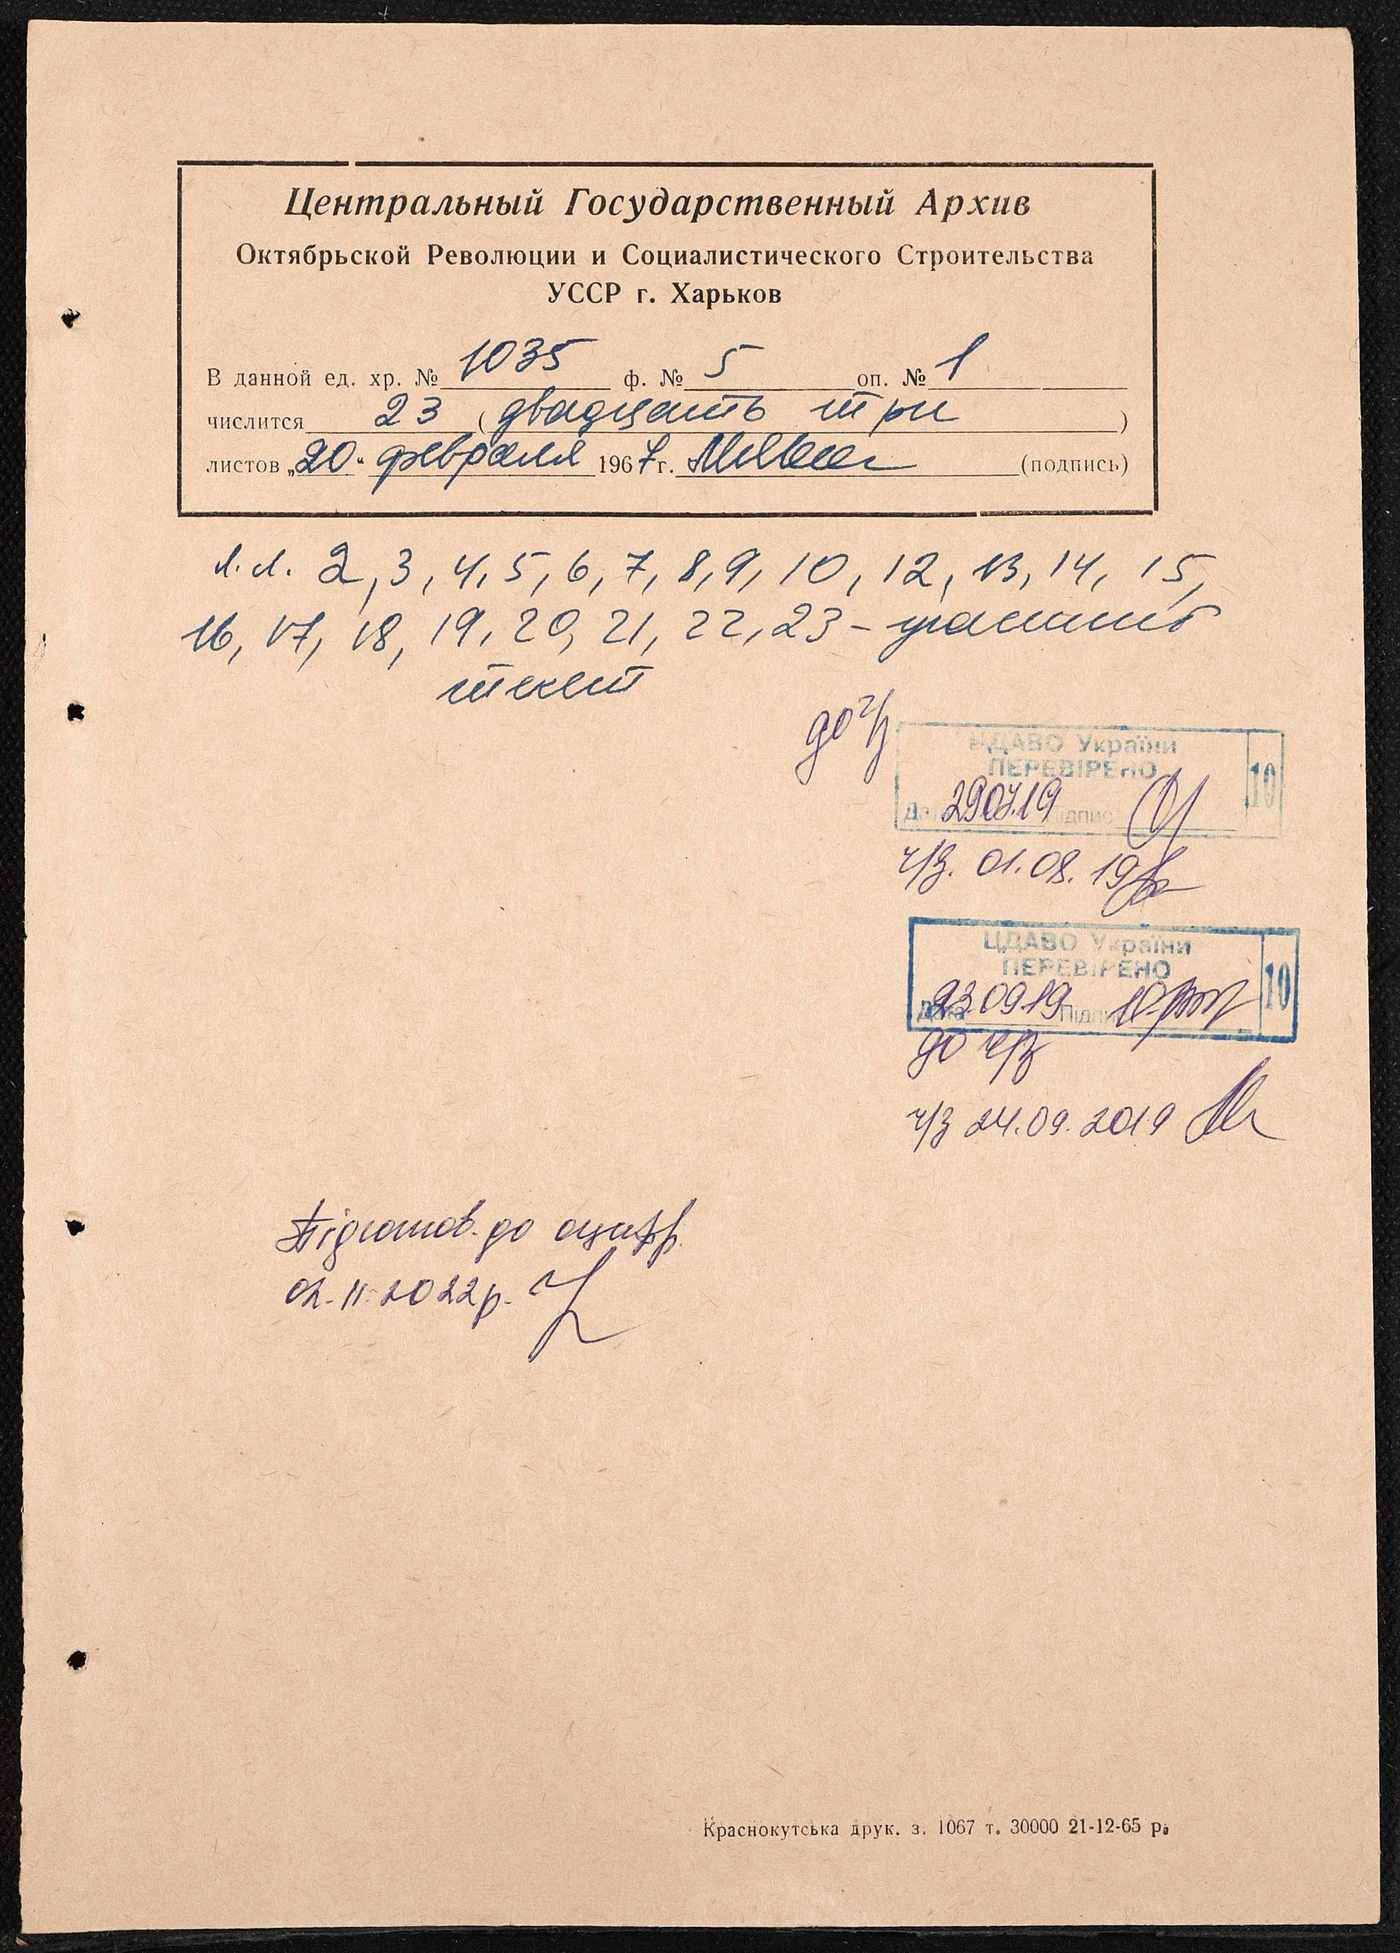 Центральный Государственный Архив
Октябрьской Революции и Социалистического Строительства
УССР г. Харьков
В данной ед. хр. № 1035 ф. № 5 оп. № 1
числится 23 (двадцать три)
листов „20" февраля 1967 г. (подпись)
л.л. 2, 3, 4, 5, 6, 7, 8, 9, 10, 12, 13, 14, 15,
16, 17, 18, 19, 20, 21, 22, 23 – угасший
текст
до ч/з
ЦДАВО України
ПЕРЕВІРЕНО
10
Дата 29.07.19 Підпис
ч/з. 01.08.19
ЦДАВО України
ПЕРЕВІРЕНО
10
Дата 23.09.19 Підпис
до ч/з
ч/з 24.09.2019
Підготов. до оцифр.
02.11.2022р.
Краснокутська друк. з. 1067 т. 30000 21-12-65 р.